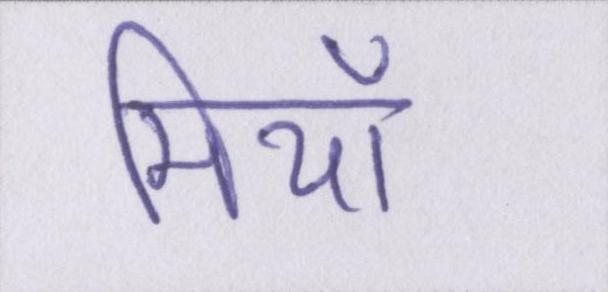 मियॉ